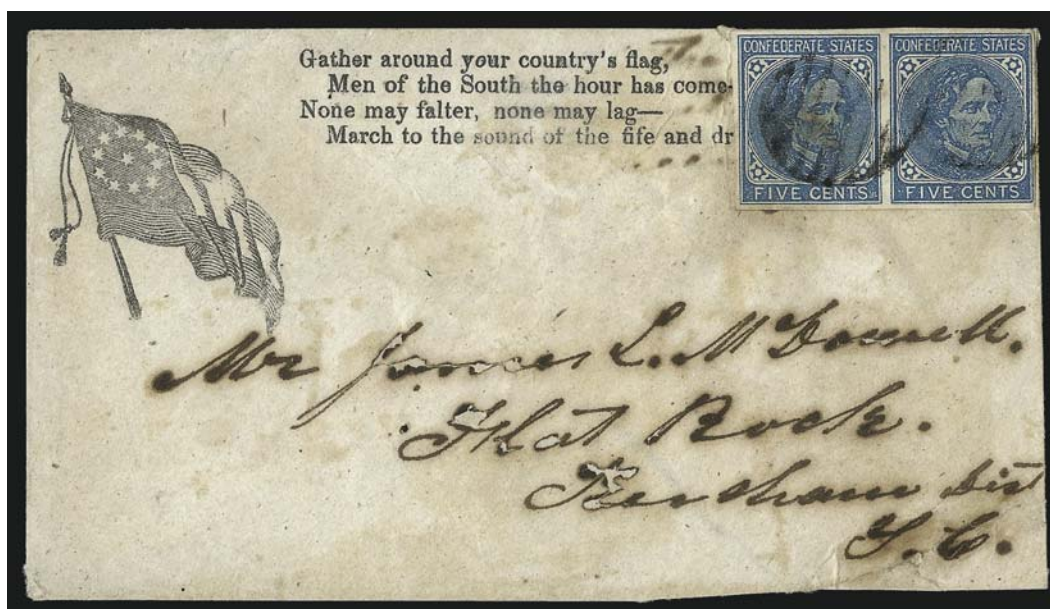 Gather around your country's flag,
Men of the South the hour has come
None may falter, none may lag—
March to the sound of the fife and dr
CONFEDERATE STATES
FIVE CENTS
CONFEDERATE STATES
FIVE CENTS
Mr James L. McDowell.
Flat Rock.
Kershaw Dist
S.C.